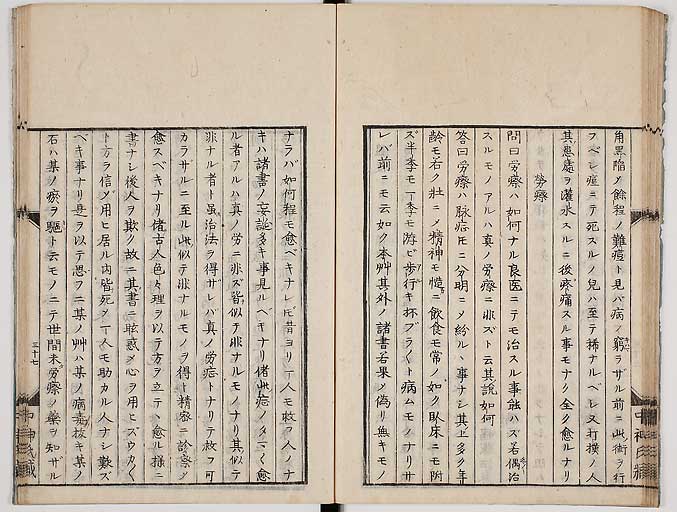 角黒陥ノ餘程ノ難痘ト見バ病ノ窮ラザル前ニ此術ヲ行
フベシ痘ニテ死スルノ児ハ至テ稀ナルベシ又打撲ノ人
其患處ヲ灌水スルニ後疼痛スル事モナク全ク愈ルナリ
労瘵
問曰労瘵ハ如何ナル良医ニテモ治スル事能ハズ若偶治
スルモノアルハ真ノ労瘵ニ非ズト云其説如何
答曰労瘵ハ脉症トモニ分明ニノ紛ルヽ事ナシ其上多ク年
齢モ若ク壮ニノ精神モ慥ニ飲食モ常ノ如ク臥床ニモ附
ズ半季モ一季モ游ビ歩行キ杯ブラ〱ト病ムモノナリサ
レバ前ニモ云如ク本艸其外ノ諸書若果ノ偽リ無キモノ
ナラバ如何程モ愈ベキナレドモ昔ヨリ一人モ救フ人ノナ
キハ諸書ノ妄誕多キ事見ルベキナリ偖此症ノタマ〱愈
ル者アルハ真ノ労ニ非ズ皆似テ非ナルモノナリ其似テ
非ナル者ト虽治法ヲ得ザレバ真ノ労症トナリテ救フ可
カラザルニ至ル此似テ非ナルモノヲ得ト精密ニ診察ノ
愈スベキナリ偖古人色々理ヲ以テ方ヲ立テヽ愈ル様ニ
書ナシ後人ヲ欺ク故ニ其書ニ眩惑ノ心ヲ用ヒズウカ〱
ト方ヲ信ノ用ヒ居ル内皆死ノ一人モ助カル人ナシ歎ズ
ベキ事ナリ是ヲ以テ思フニ某ノ艸ハ某ノ病毒ヲ抜キ某ノ
石ハ某ノ瘀ヲ駆ト云モノニテ世間未労瘵ノ薬ヲ知サル
三十七